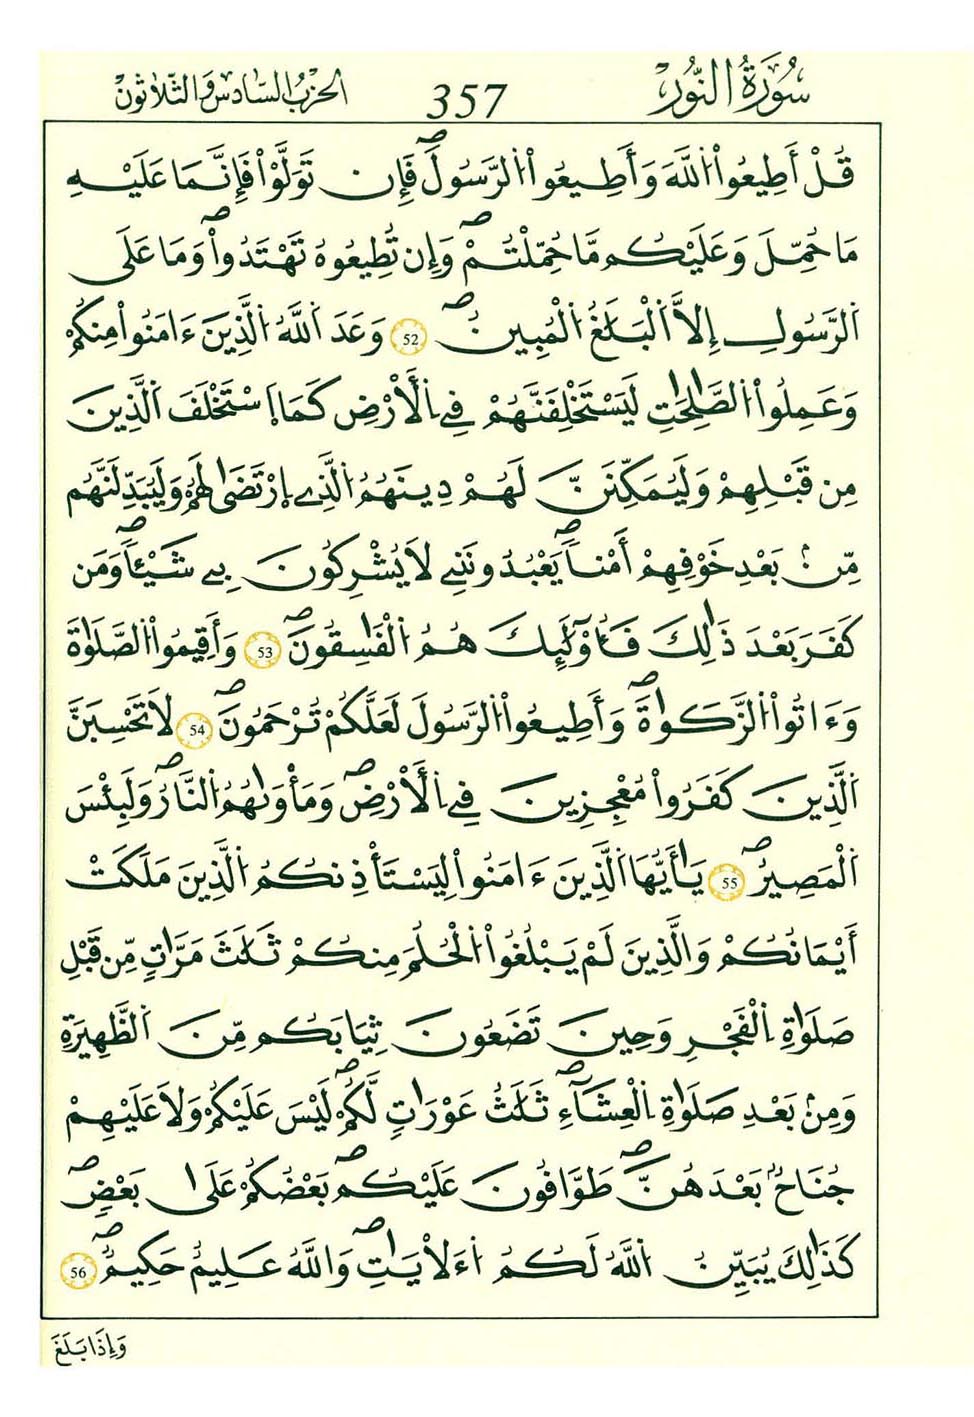 سُورَةُ النُّور 357 الحِزْبُ السَّادِس وَالثَّلَاثُونْ
قُلْ أَطِيعُواْ اُ۬للَّهَ وَأَطِيعُواْ اُ۬لرَّسُولَۖ فَإِن تَوَلَّوْاْ فَإِنَّمَا عَلَيْهِ
مَا حُمِّلَ وَعَلَيْكُم مَّا حُمِّلْتُمْۖ وَإِن تُطِيعُوهُ تَهْتَدُواْۖ وَمَا عَلَى
اَ۬لرَّسُولِ إِلَّا اَ۬لْبَلَٰغُ اُ۬لْمُبِينُۖ 52 وَعَدَ اَ۬للَّهُ اُ۬لذِينَ ءَامَنُواْ مِنكُمْ
وَعَمِلُواْ اُ۬لصَّٰلِحَٰتِ لَيَسْتَخْلِفَنَّهُمْ فِے اِ۬لْأَرْضِ كَمَا اَ۪سْتَخْلَفَ اَ۬لذِينَ
مِن قَبْلِهِمْ وَلَيُمَكِّنَنَّ لَهُمْ دِينَهُمُ اُ۬لذِے اِ۪رْتَضَىٰ لَهُمْ وَلَيُبَدِّلَنَّهُم
مِّنۢ بَعْدِ خَوْفِهِمْ أَمْناٗۖ يَعْبُدُونَنِے لَا يُشْرِكُونَ بِے شَيْـٔاٗۖ وَمَن
كَفَرَ بَعْدَ ذَٰلِكَ فَأُوْلَٰٓئِكَ هُمُ اُ۬لْفَٰسِقُونَۖ 53 وَأَقِيمُواْ اُ۬لصَّلَوٰةَ
وَءَاتُواْ اُ۬لزَّكَوٰةَۖ وَأَطِيعُواْ اُ۬لرَّسُولَ لَعَلَّكُمْ تُرْحَمُونَۖ 54 لَا تَحْسِبَنَّ
اَ۬لذِينَ كَفَرُواْ مُعْجِزِينَ فِے اِ۬لْأَرْضِۖ وَمَأْوَىٰهُمُ اُ۬لنَّارُۖ وَلَبِئْسَ
اَ۬لْمَصِيرُۖ 55 يَٰٓأَيُّهَا اَ۬لذِينَ ءَامَنُواْ لِيَسْتَأْذِنكُمُ اُ۬لذِينَ مَلَكَتْ
أَيْمَانُكُمْ وَالذِينَ لَمْ يَبْلُغُواْ اُ۬لْحُلُمَ مِنكُمْ ثَلَٰثَ مَرَّٰتٖ مِّن قَبْلِ
صَلَوٰةِ اِ۬لْفَجْرِ وَحِينَ تَضَعُونَ ثِيَابَكُم مِّنَ اَ۬لظَّهِيرَةِ
وَمِنۢ بَعْدِ صَلَوٰةِ اِ۬لْعِشَآءِۖ ثَلَٰثُ عَوْرَٰتٖ لَّكُمْۖ لَيْسَ عَلَيْكُمْ وَلَا عَلَيْهِمْ
جُنَاحُۢ بَعْدَهُنَّۖ طَوَّٰفُونَ عَلَيْكُمۖ بَعْضُكُمْ عَلَىٰ بَعْضٖۖ
كَذَٰلِكَ يُبَيِّنُ اُ۬للَّهُ لَكُمُ اُ۬لَأيَٰتِۖ وَاللَّهُ عَلِيمٌ حَكِيمٌۖ 56
وَإِذَا بَلَغَ